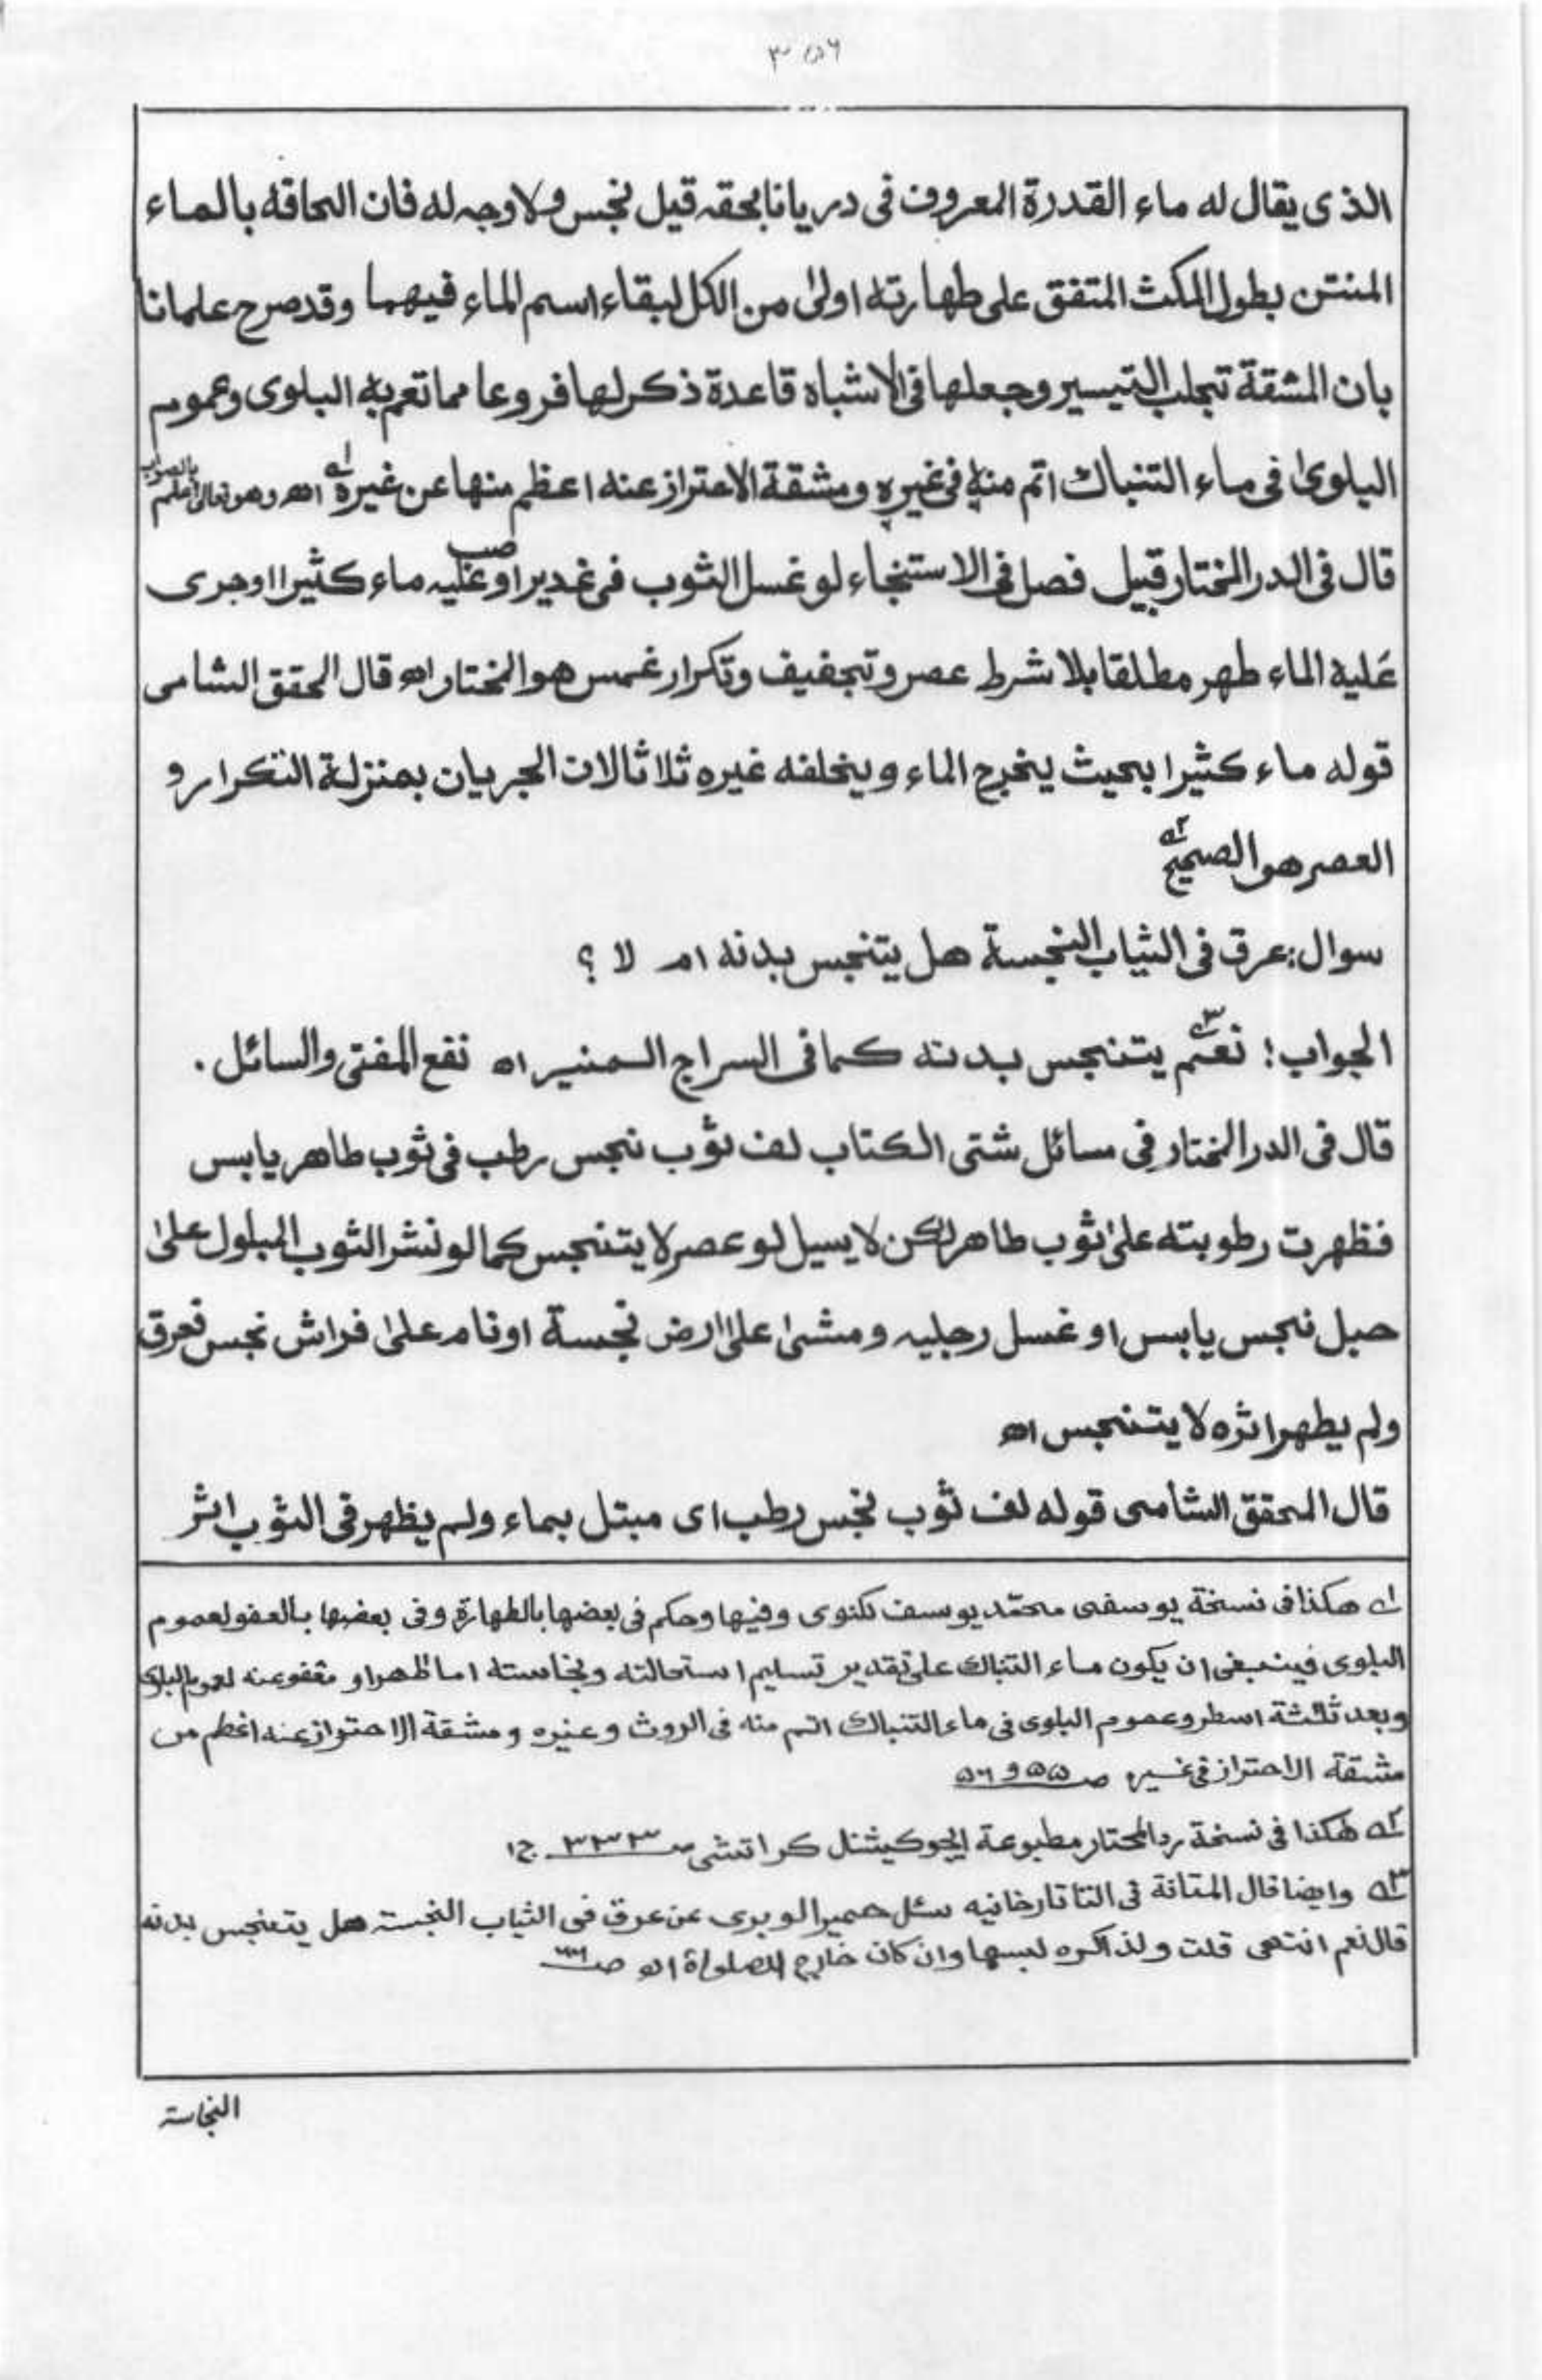 ٣٥٦
الذى يقال له ماء القدرة المعروف فى ديارنا بحقه قيل نجس ولا وجه له فان الحاقه بالماء
المنتن بطول المكث المتفق على طهارته اولىٰ من الكل لبقاء اسم الماء فيهما وقد صرح علمانا
بان المشقة تجلب التيسير وجعلها فى الاشباه قاعدة ذكر لها فروعا مما تعم به البلوى وعموم
البلوىٰ فى ماء التنباك اتم منه فى غيره ومشقة الاحتراز عنه اعظم منها عن غيره ١ه اھ وهو تعالىٰ اعلم بالصواب
قال فى الدر المختار قبيل فصل فى الاستنجاء لو غسل الثوب فى غدير او صب عليه ماء كثيرا او جرى
عَليه الماء طهر مطلقا بلا شرط عصر وتجفيف وتكرار غمس هو المختار اھ قال المحقق الشامى
قوله ماء كثيرا بحيث يخرج الماء ويخلفه غيره ثلاثا لان الجريان بمنزلة التكرار و
العصر هو الصحيح ٢ه
سوال: عرق فى الثياب النجسة هل يتنجس بدنه ام لا ؟
الجواب: نعم ٣ه يتنجس بدنه كما فى السراج المنير اه نفع المفتى والسائل.
قال فى الدر المختار فى مسائل شتى الكتاب لف ثوب نجس رطب فى ثوب طاهر يابس
فظهرت رطوبته علىٰ ثوب طاهر لكن لا يسيل لو عصر لا يتنجس كما لو نشر الثوب المبلول علىٰ
حبل نجس يابس او غسل رجليه ومشىٰ علىٰ ارض نجسة او نام علىٰ فراش نجس فعرق
ولم يظهر اثره لا يتنجس اھ
قال المحقق الشامى قوله لف ثوب نجس رطب اى مبتل بماء ولم يظهر فى الثوب اثر
١ه هكذا فى نسخة يوسفى محمّد يوسف لكنوى وفيها وحكم فى بعضها بالطهارة وفى بعضها بالعفو لعموم
البلوى فينبغى ان يكون ماء التنباك على تقدير تسليم استحالته ونجاسته اما ظهرا و معفو عنه لعموم البلوى
وبعد ثلثة اسطر وعموم البلوى فى ماء التنباك اتم منه فى الروث وغيره ومشقة الاحتراز عنه اعظم من
مشقة الاحتراز فى غيره صـ ٥٥ و ٥٦
٢ه هٰكذا فى نسخة رد المحتار مطبوعة ايجوكيشنل كراتشى صـ ٣٣٣ ج١
٣ه وايضا قال فى التاتارخانيه سئل حمير الوبرى عن عرق فى الثياب النجسة هل يتنجس بدنه
قال نعم انتهى قلت ولذا كره لبسها وان كان خارج الصلوٰة اھ صـ
النجاسة